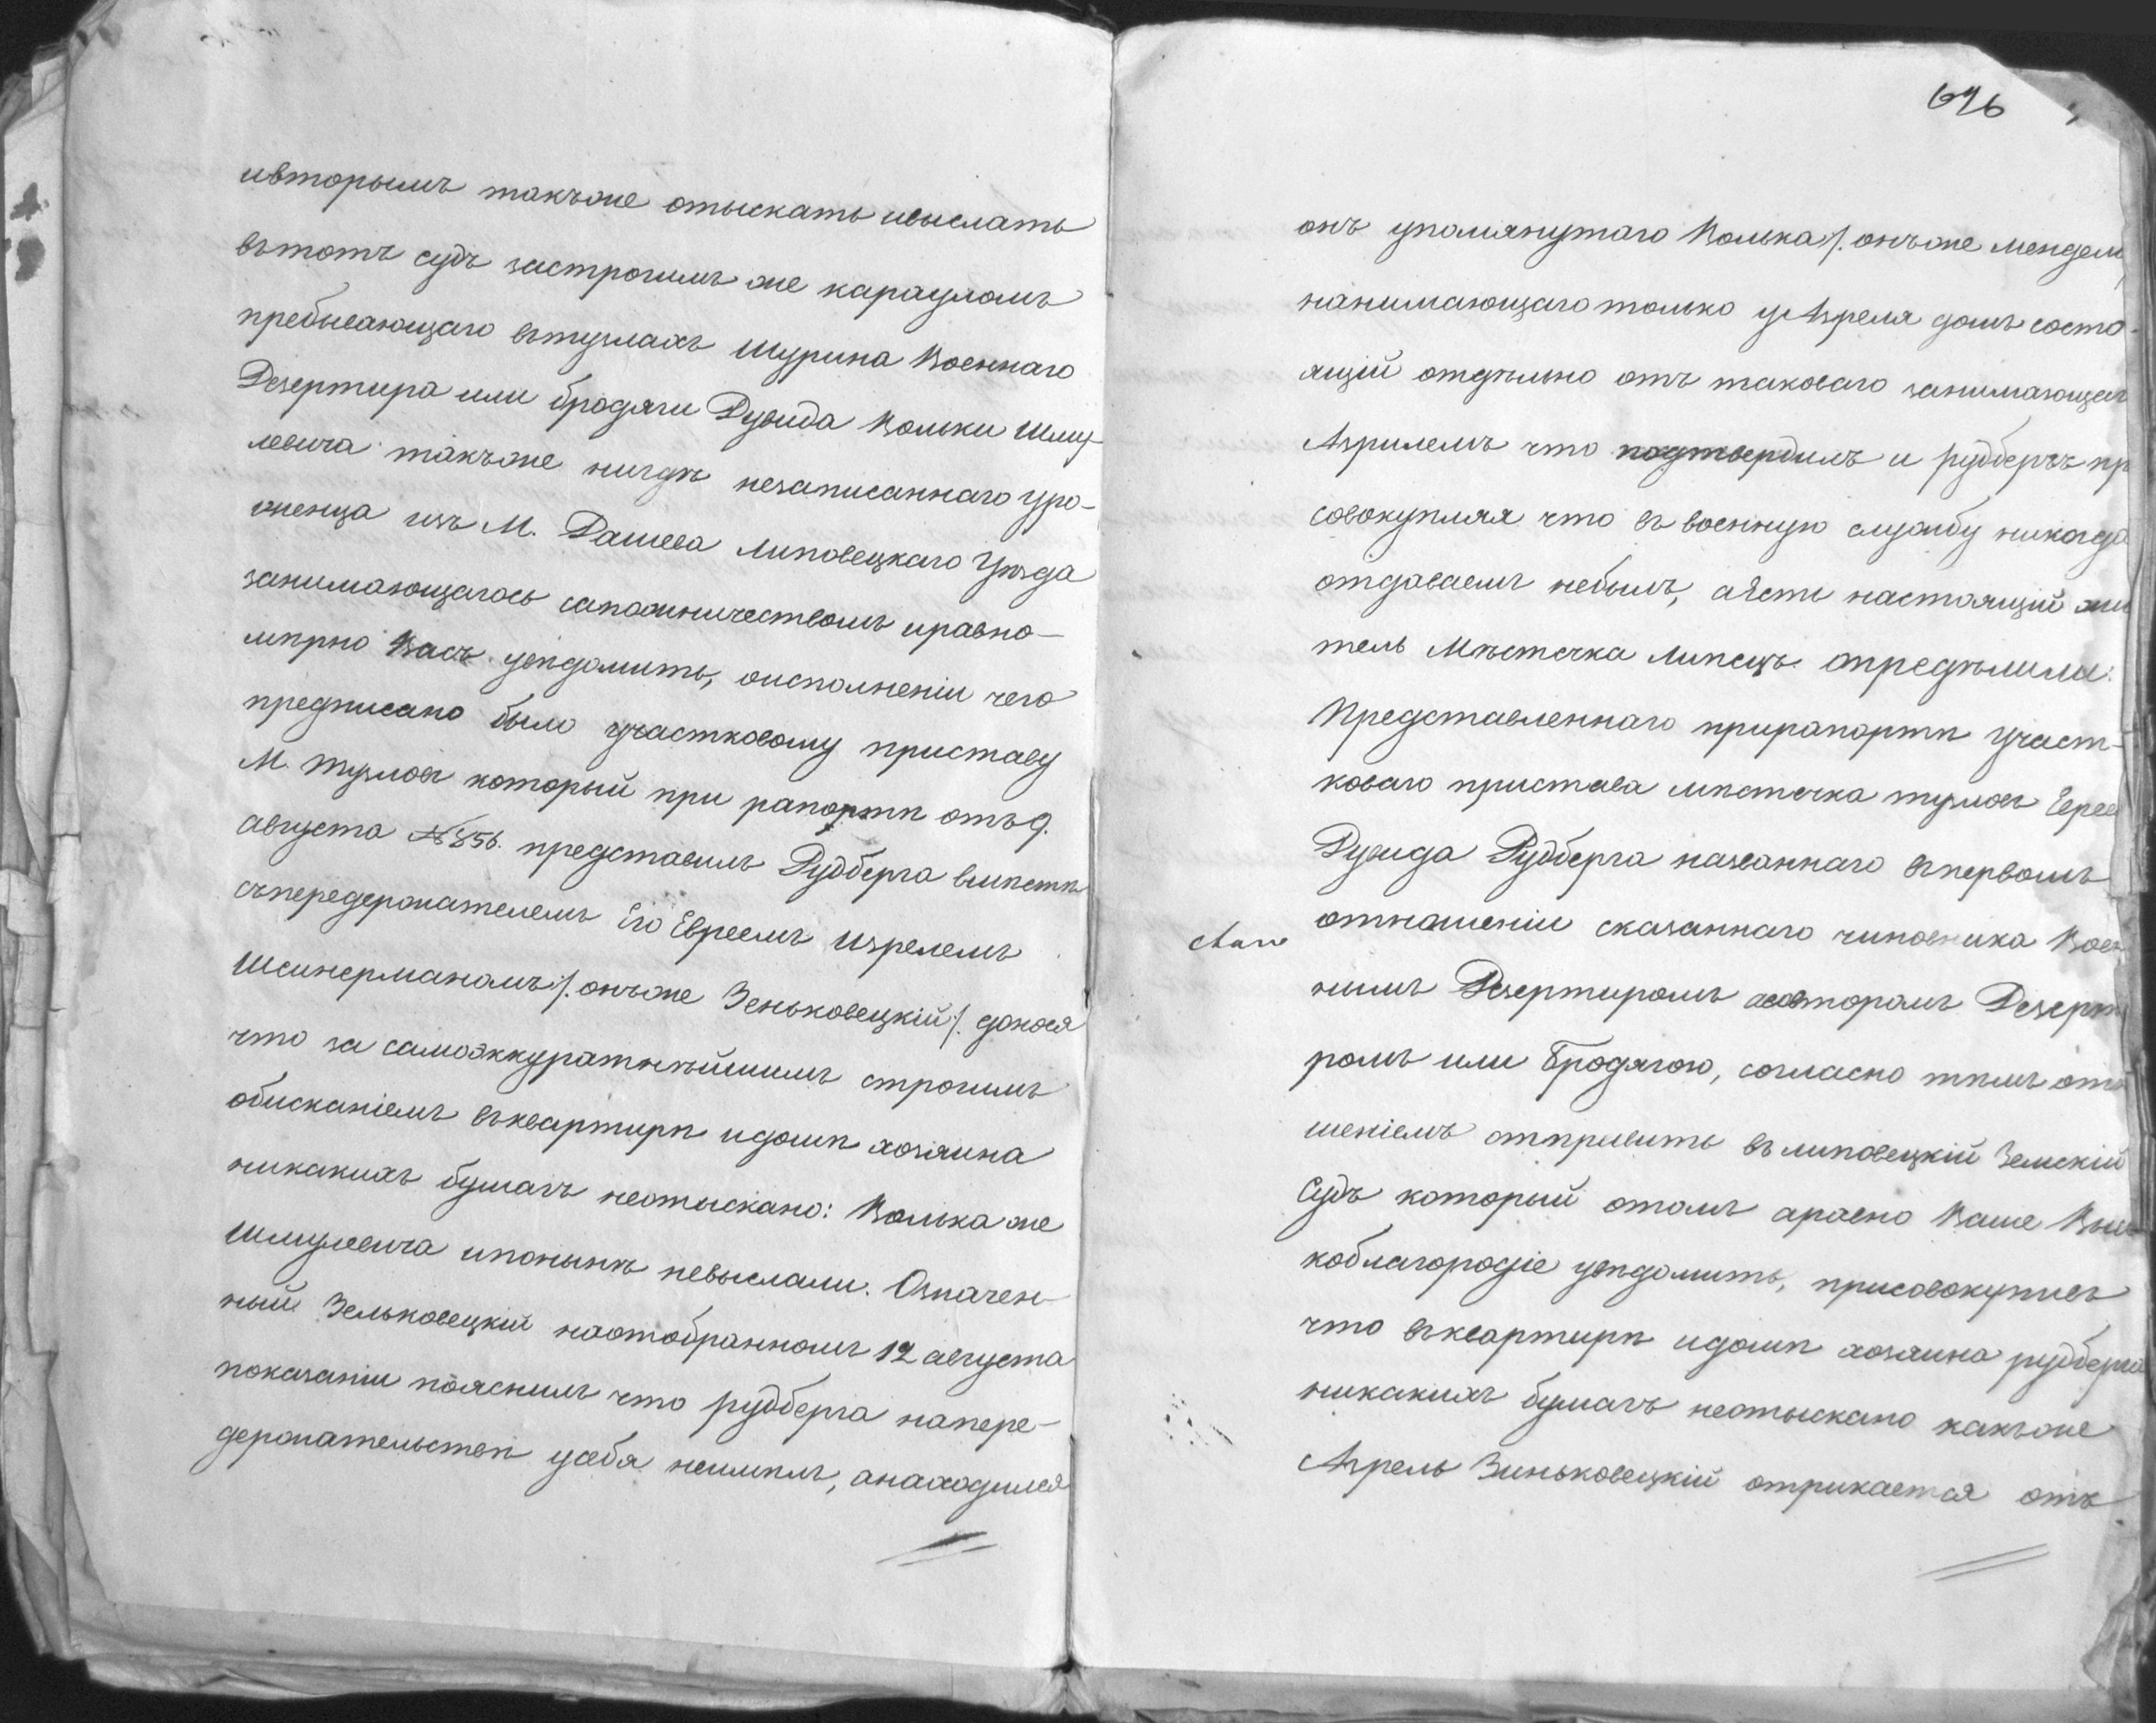 ивторымъ такъже отыскать ивыслать
вътотъ судъ застрогимъ же карауломъ
пребывающаго вътузлахъ шурина Военнаго
Дезертира или бродяги Дувида Вольки Шму-
левича такъже нигдѣ незаписаннаго уро-
женца изъ М. Дашева Липовецкаго Уѣзда
занимающагось сапожничествомъ иравно-
мѣрно Васъ увѣдомить, оисполненіи чего
предписано было участковому приставу
М. тузловъ который при рапортѣ отъ 9.
августа №856. представилъ Рудберга вмѣстѣ
съпередержателемъ Его Евреемъ Изрелемъ
Шейнерманомъ/. онъже Зеньковецкій/. донося
что за самоаккуратнѣйшимъ строгимъ
обисканіемъ въквартирѣ идомѣ хозяина
никакихъ бумагъ неотыскано: Волька же
Шмулевича ипонынѣ невыслали. Означен-
ный Зельковецкій наотобранномъ 12 августа
показаніи пояснилъ что рудберга напере-
держательствѣ усебя неимѣлъ, анаходился
696
онъ упомянутаго Волька/. онъже мендель
нанимающаго только у Азреля домъ состо-
ящій отдѣльно отъ таковаго занимающаг
Азрилемъ что подтвердилъ и рудбергъ пр
совокупляя что въ военную службу никогда
отдаваемъ небылъ, аѣсть настоящій жи
тель Мѣстечка Липецъ опредѣлили:
Представленнаго прирапортѣ участ-
коваго пристава мѣстечка тузловъ Еврея
Дувида Рудберга названнаго въпервомъ
отношеніи сказаннаго чиновника Воен
нымъ Дезертиромъ авовторомъ Дезерти
ромъ или Бродягою, согласно тѣмъ отн
шеніемъ отправить въ липовецкій Земскій
Судъ который отомъ аравно Ваше Высо
коблагородіе увѣдомить, присовокупивъ
что въквартирѣ идомѣ хозяина рудберга
никакихъ бумагъ неотыскано какъже
Азрель Зиньковецкій отрикается отъ